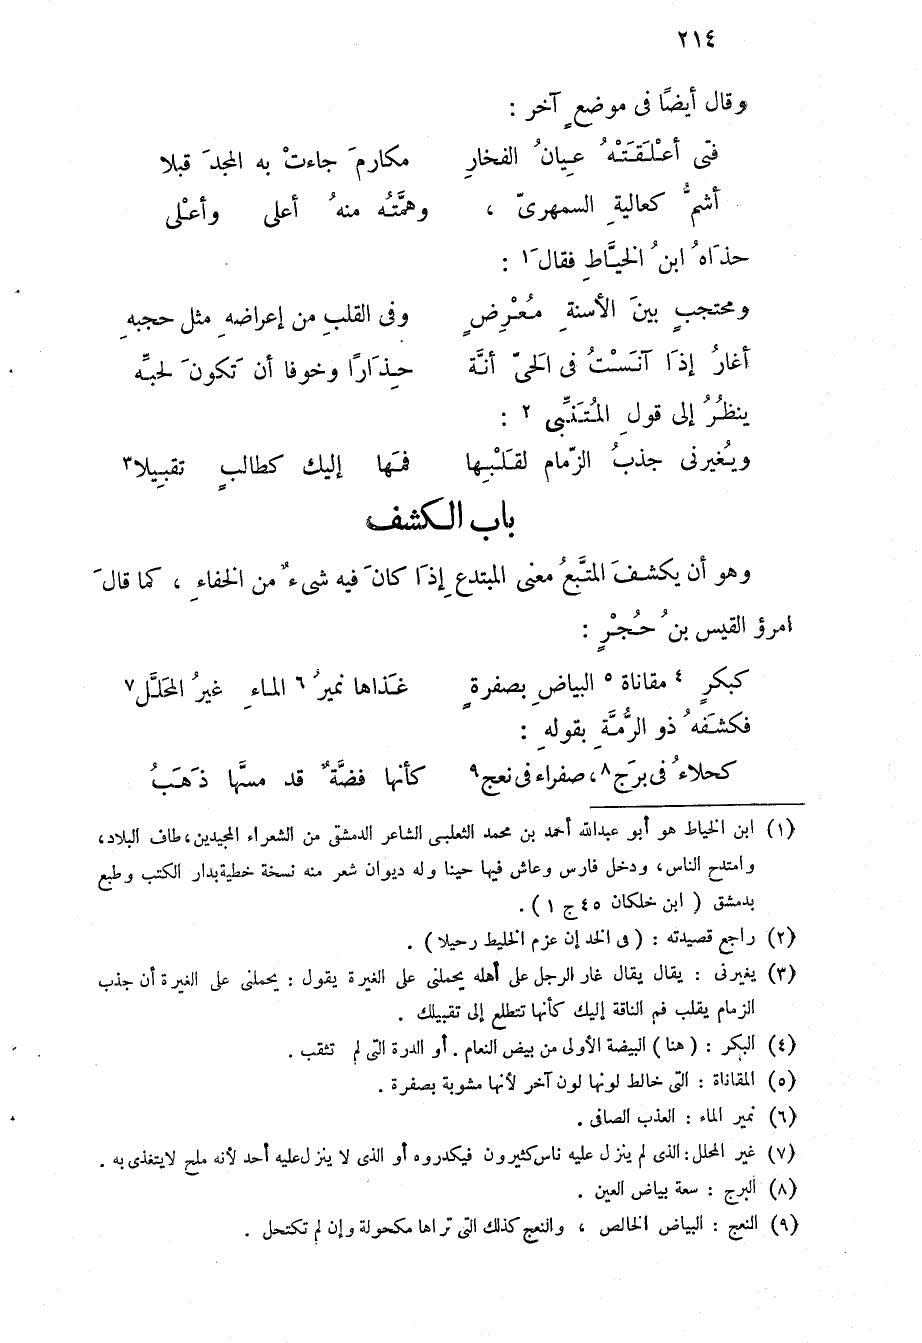 ٢١٤
وقال أيضًا فى موضعٍ آخر :
فتى أعْلَقَتْهُ عِيانُ الفخارِ مكارمَ جاءتْ به المجدَ قبلا
أشمُّ كعاليةِ السمهرىّ ، وهمَّتُه منهُ أعلى وأعْلى
حذَاهُ ابنُ الخيَّاطِ فقالَ١ :
ومحتجبٍ بينَ الأسنةِ مُعْرِضٍ وفى القلبِ من إعراضهِ مثل حجبهِ
أغارُ إذَا آنَسْتُ فى الحَىّ أنَّة حِذَارًا وخوفا أن تَكونَ لحبِّه
ينظُرُ إلى قولِ المُتَنَبِّى ٢ :
ويُغيرنى جذبُ الزّمام لقَلْبِها فمَها إليك كطالبٍ تقبيلا٣
باب الكشف
وهو أن يكشفَ المتَّبعُ معنى المبتدعِ إذَا كانَ فيه شىءٌ من الخفاءِ ، كما قالَ
امرؤ القيس بنُ حُجْرٍ :
كبكرٍ ٤ مقاناة ٥ البياضِ بصفرةٍ غَذاها نميرُ ٦ الماءِ غيرُ المحَلَّل٧
فكشَفهُ ذو الرُّمَّةِ بقولهِ :
كحلاءُ فى برَج٨، صفراء فى نعج٩ كأنها فضَّةٌ قد مسَّها ذهَبُ
(١) ابن الخياط هو أبو عبدالله أحمد بن محمد الثعلبى الشاعر الدمشقى من الشعراء المجيدين، طاف البلاد،
وامتدح الناس، ودخل فارس وعاش فيها حينا وله ديوان شعر منه نسخة خطية بدار الكتب وطبع
بدمشق ( ابن خلكان ٤٥ ج ١ ) .
(٢) راجع قصيدته : ( فى الخد إن عزم الخليط رحيلا ) .
(٣) يغيرنى : يقال يقال غار الرجل على أهله يحملنى على الغيرة يقول : يحملنى على الغيرة أن جذب
الزمام يقلب فم الناقة إليك كأنها تتطلع إلى تقبيلك .
(٤) البكر : ( هنا ) البيضة الأولى من بيض النعام . أو الدرة التى لم تثقب .
(٥) المقاناة : التى خالط لونها لون آخر لأنها مشوبة بصفرة .
(٦) نمير الماء : العذب الصافى .
(٧) غير المحلل : الذى لم ينزل عليه ناس كثيرون فيكدروه أو الذى لا ينزل عليه أحد لأنه ملح لا يتغذى به .
(٨) البرج : سعة بياض العين .
(٩) النعج : البياض الخالص ، والنعج كذلك التى تراها مكحولة وإن لم تكتحل .